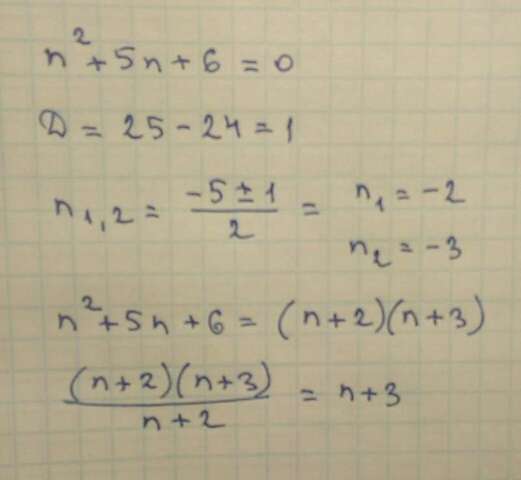 n² + 5n + 6 = 0
D = 25 - 24 = 1
n₁,₂ = (-5 ± 1)/2 = n₁ = -2
n₂ = -3
n² + 5n + 6 = (n + 2)(n + 3)
(n + 2)(n + 3)/(n + 2) = n + 3